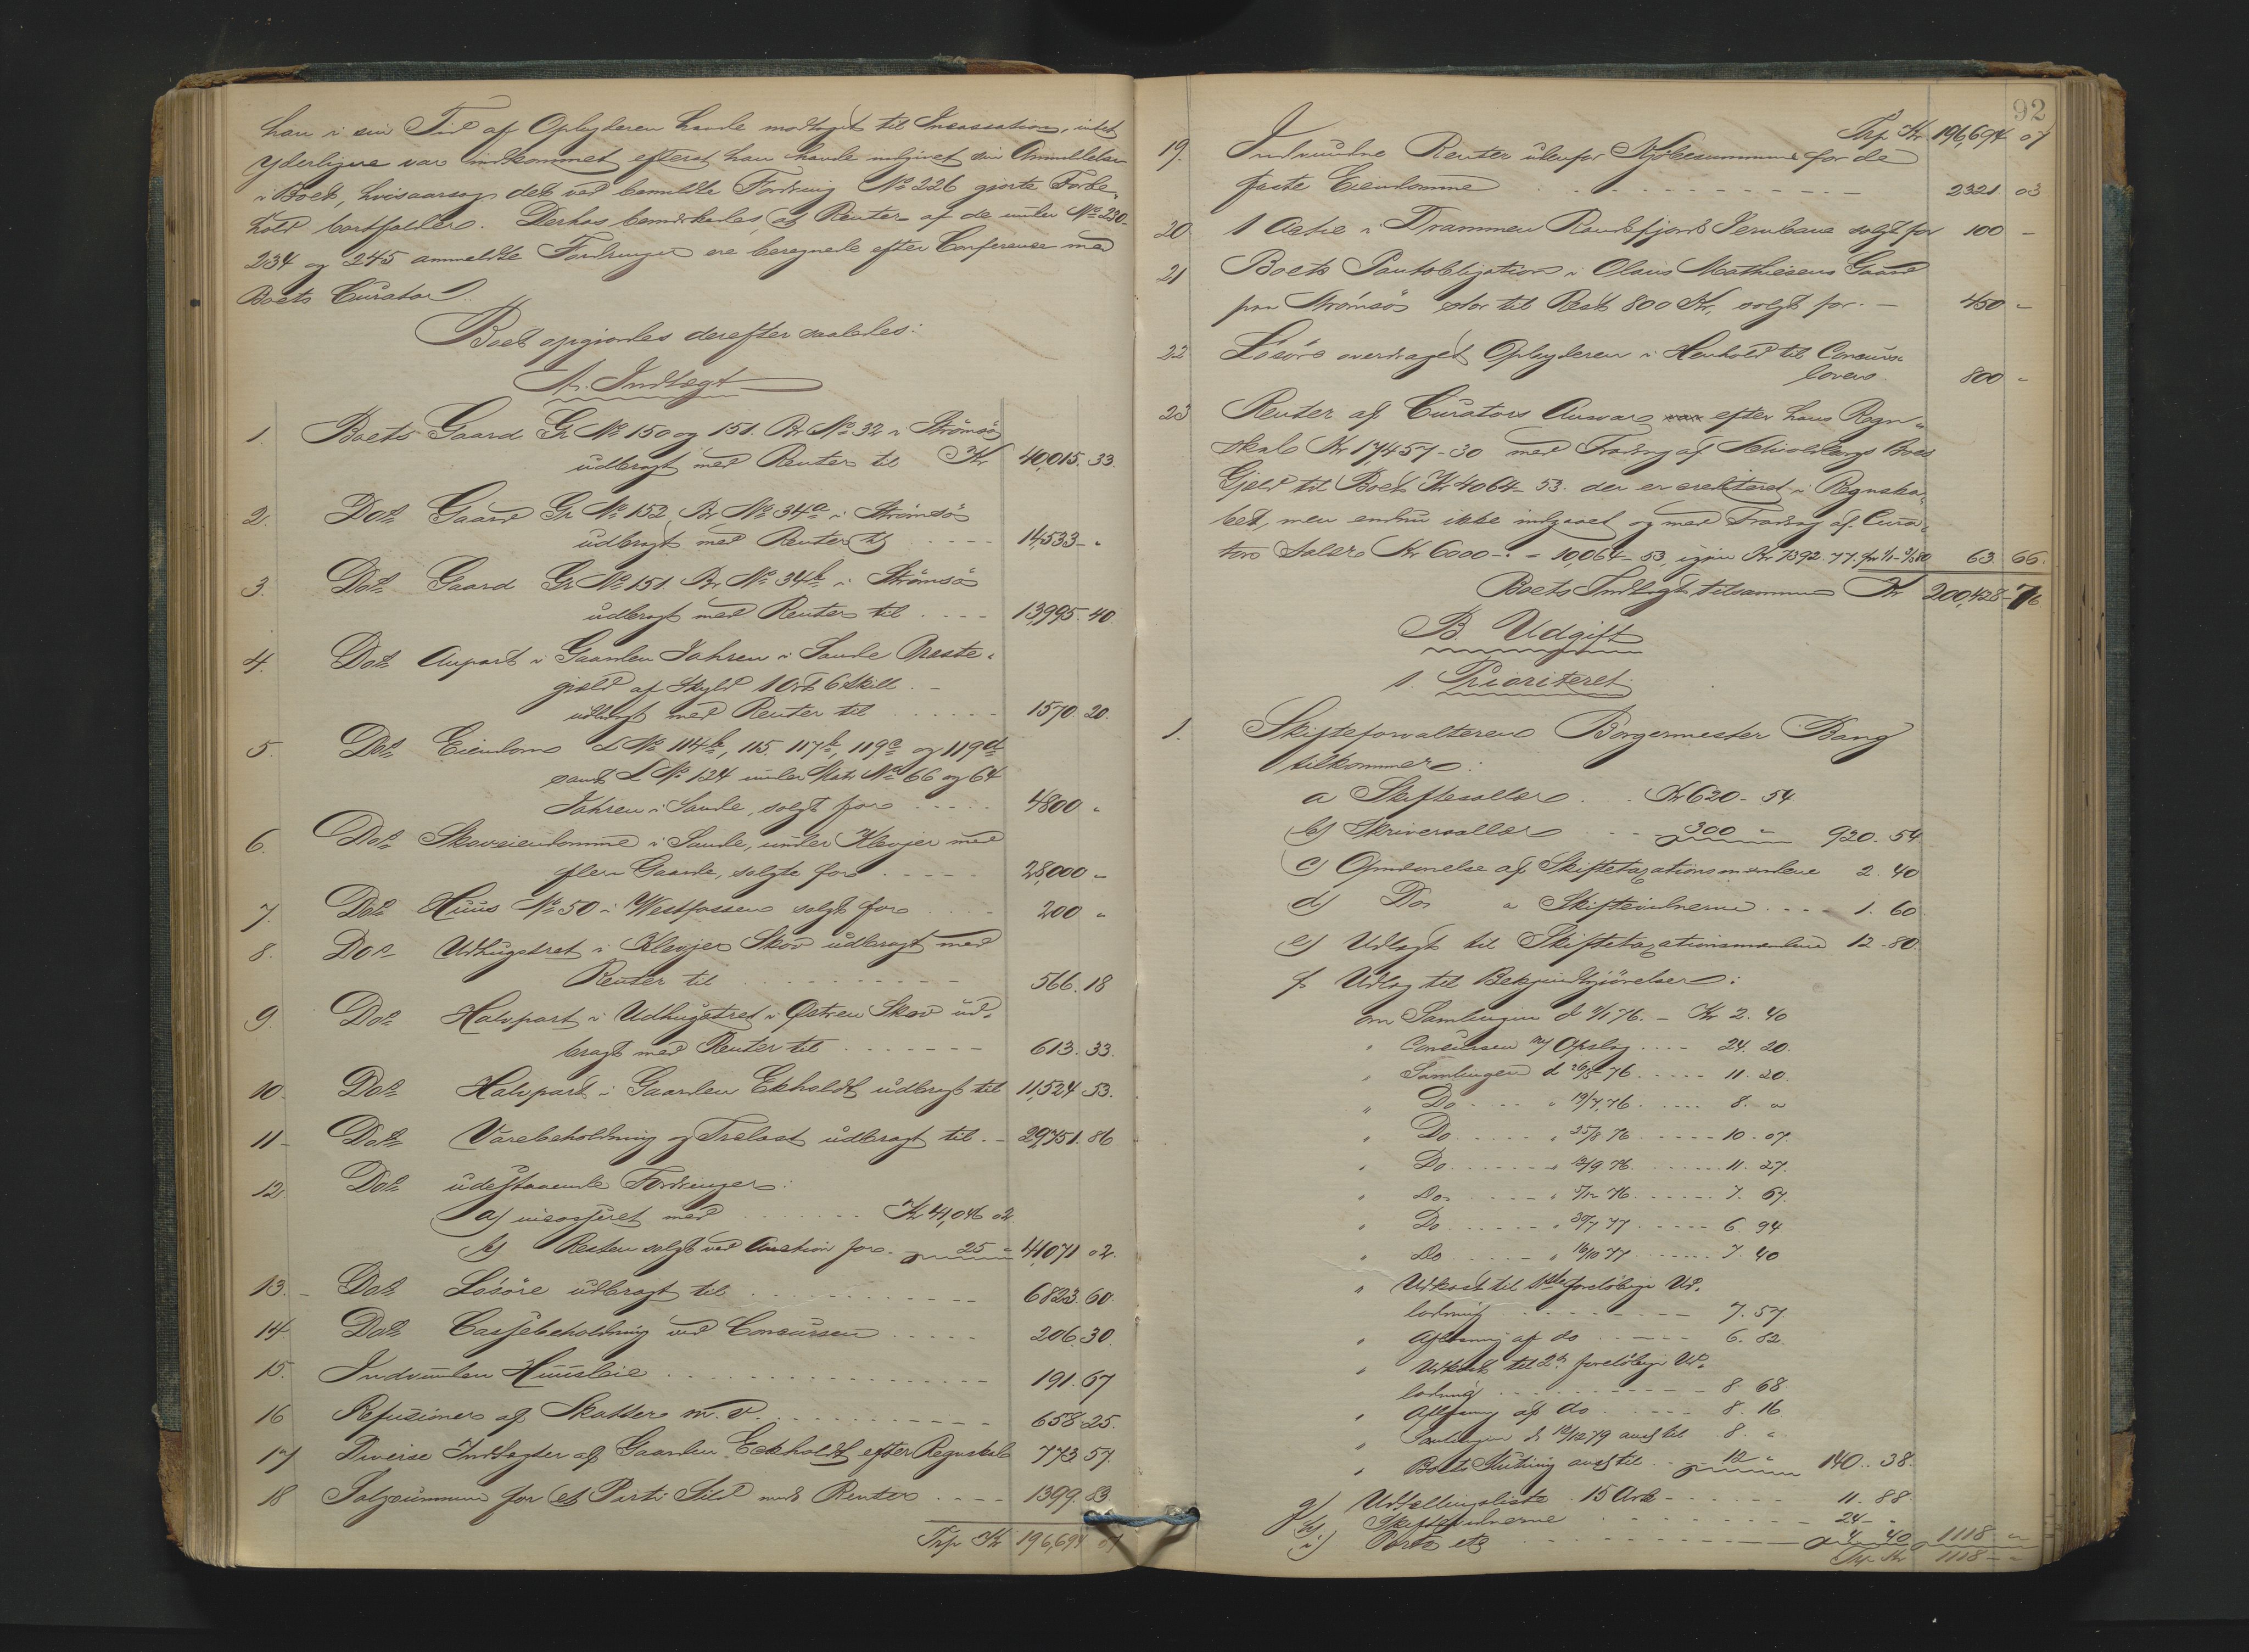 han i sin Tid af Opbyderen havde modtaget til Incassation, intet
yderligere var indkommet efterat han havde indgivet sin Anmeldelse
i Boet, hvisaarsag det ved bemeldte Fordring No 226 gjorte Forbe-
hold bortfalder. Derhos bemærkedes, at Renter af de under No 230-
234 og 245 anmeldte Fordringer ere beregnede efter Conference med
Boets Curator.
Boet opgjordes derefter saaledes:
A. Indtægt
1. Boets Gaard Gr No 150 og 151. Br No 32 i Strømsø
udbragt med Renter til Kr 40,015. 33.
2. Dots Gaard Gr No 152 Br No 34a i Strømsø
udbragt med Renter til 14,533 - "
3. Dots Gaard Gr No 151. Br No 34b i Strømsø
udbragt med Renter til 13,995. 40.
4. Dots Anpart i Gaarden Jahren i Sande Præste-
gjeld af Skyld 1 Ort 6 Skill. -
udbragt med Renter til 1570. 20.
5. Dots Eiendom L No 114b, 115. 117b, 119c og 119d
samt L No 124 under Matr No 66 og 64
Jahren i Sande, solgt for 4800 "
6. Dots Skoveiendomme i Sande, under Klevjer med
flere Gaarde, solgte for 28,000 "
7. Dots Huus No 50 i Westfossen solgt for 200 "
8. Dots Udhugstret i Klevjer Skov udbragt med
Renter til 566. 18
9. Dots Halvpart i Udhugstret i Østren Skov ud-
bragt med Renter til 613. 33.
10. Dots Halvpart i Gaarden Ekholdt udbragt til 11,524. 53.
11 - Dots Varebeholdning og Trælast udbragt til. - 29,751. 86
12. Dots udestaaende Fordringer:
a) incasseret med Kr 41,046 02
b) Resten solgt ved Auction for. 25 " 41,071 02.
13. - Dots Løsøre udbragt til 6823. 60.
14 Dots Cassebeholdning ved Concursen 206. 30.
15. Indvunden Huusleie 191. 67
16 Refusioner af Skatter m. v. 658. 25.
17 Diverse Indtægter af Gaarden Eckholdt efter Regnskab 773. 57.
18 Salgssummen for et Parti Sild med Renter 1399. 83.
Trp Kr 196,694 07
92
Trp Kr. 196,694 07
19. Indvundne Renter udenfor Kjøbesummene for de
faste Eiendomme 2321 03
20 1 Actie i Drammen Randsfjord Jernbane solgt for 100 -
21 Boets Pantobligation i Olaus Mathiesens Gaard
paa Strømsø stor til Rest 800 Kr, solgt for. - 450 "
22 Løsøre overdraget Opbyderen i Henhold til Concurs-
lovens 800 "
23 Renter af Curators Ansvar efter hans Regn-
skab Kr 17,457-30 med Fradrag af Schioldborgs Boes
Gjæld til Boet Kr 4064-53. der er crediteret i Regnska-
bet, men endnu ikke indgaaet og med Fradrag af Cura-
tors Salær Kr 6000-" = 10,064-53, igjen Kr 7392. 77. 63. 66.
Boets Indtægt tilsammen Kr 200,428-76
B. Udgift
1. Prioriteret
1. Skifteforvalteren Borgermester Bang
tilkommer:
a Skiftesallær Kr 620-54
b) Skriversallær 300 " 920. 54.
c) Opnævnelse af Skiftetaxationsmændene 2. 40
d) Do " Skiftevidnerne 1. 60
e) Udlagt til Skiftetaxationsmændene 12-80.
f Udlæg til Bekjendtgjørelser:
om Samlingen d 4/1 76. - Kr 2. 40
" Concursen m/ Opslag 24. 20.
" Samlingen d 26/5 76 11. 20
" Do " 19/7. 76 8. "
" Do " 25/8 76 10. 07.
" Do " 12/9 76. 11. 27.
" Do " 5/12 76 7. 67.
" Do " 30/7 77 6 94
" Do " 16/10 77 7. 40
" Udkast til 1ste foreløbige Ud-
lodning 7. 57.
" Aflæsning af do 6. 82.
" Udkast til 2den foreløbige Ud-
lodning 8. 68.
" Aflæsning af do 8. 16
" Samlingen d 12/12 79 ansl til 8. "
" Boets Slutning ansl til 12 " 140. 38.
g) Udstellingsliste 15 Ark 11. 88.
h) Skiftevidnerne 24 - "
i) Porto etc 4. 40 1118 "
Trp Kr 1118 - "